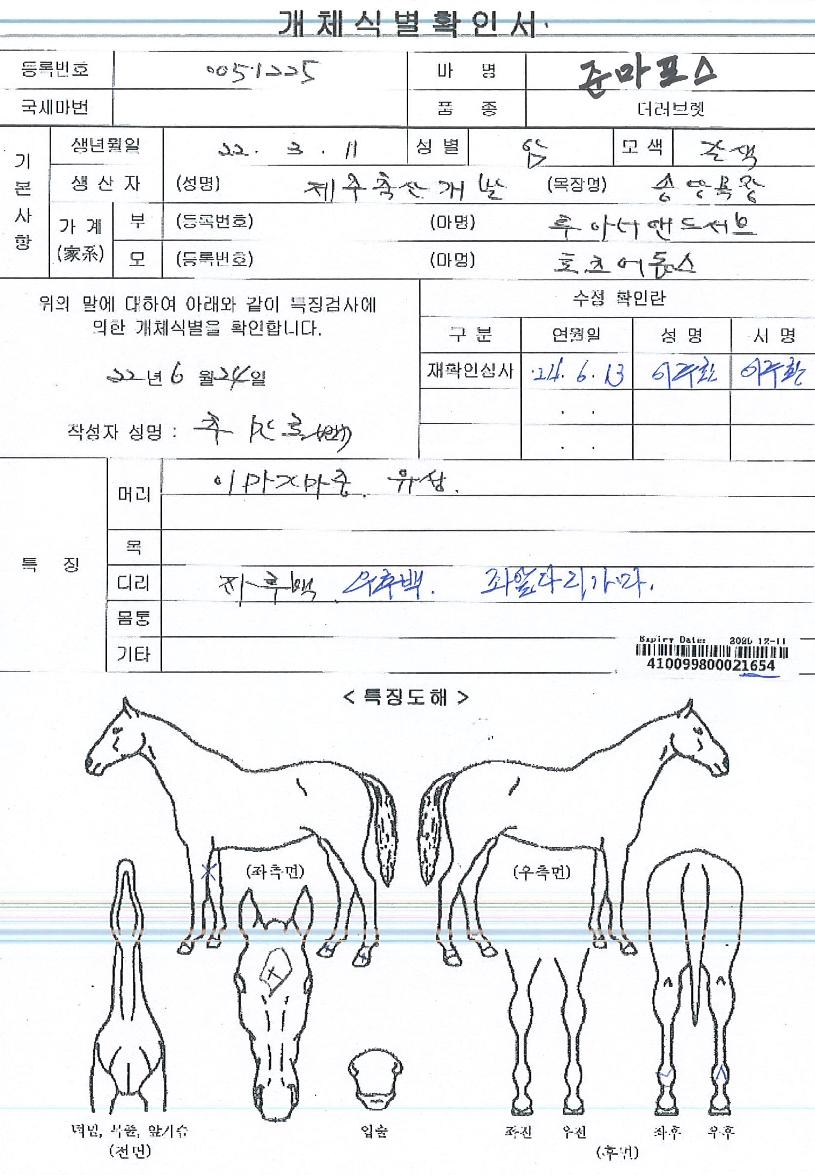 개체식별확인서
등록번호 0051225 마 명 준마포스
국제마번 품 종 더러브렛
기본사항
생년월일 22. 3. 11 성별 암 모색 갈색
생 산 자 (성명) 제주축산개발 (목장명) 송당목장
가계(家系) 부 (등록번호) (마명) 투아너앤드서브
모 (등록번호) (마명)
위의 말에 대하여 아래와 같이 특징검사에
의한 개체식별을 확인합니다.
22년 6 월 24일
작성자 성명 :
수정 확인란
구 분 연월일 성 명 서 명
재확인심사 24. 6. 13 이주환 이주환
. .
. .
특 징
머리 이마지마중. 유성.
목
다리 좌후백 우후백. 좌앞다리가마.
몸통
기타
Expiry Date: 12-11
410099800021654
< 특징도해 >
(좌측면) (우측면)
(전면)
입술
좌전 우전 좌후 우후
(후면)